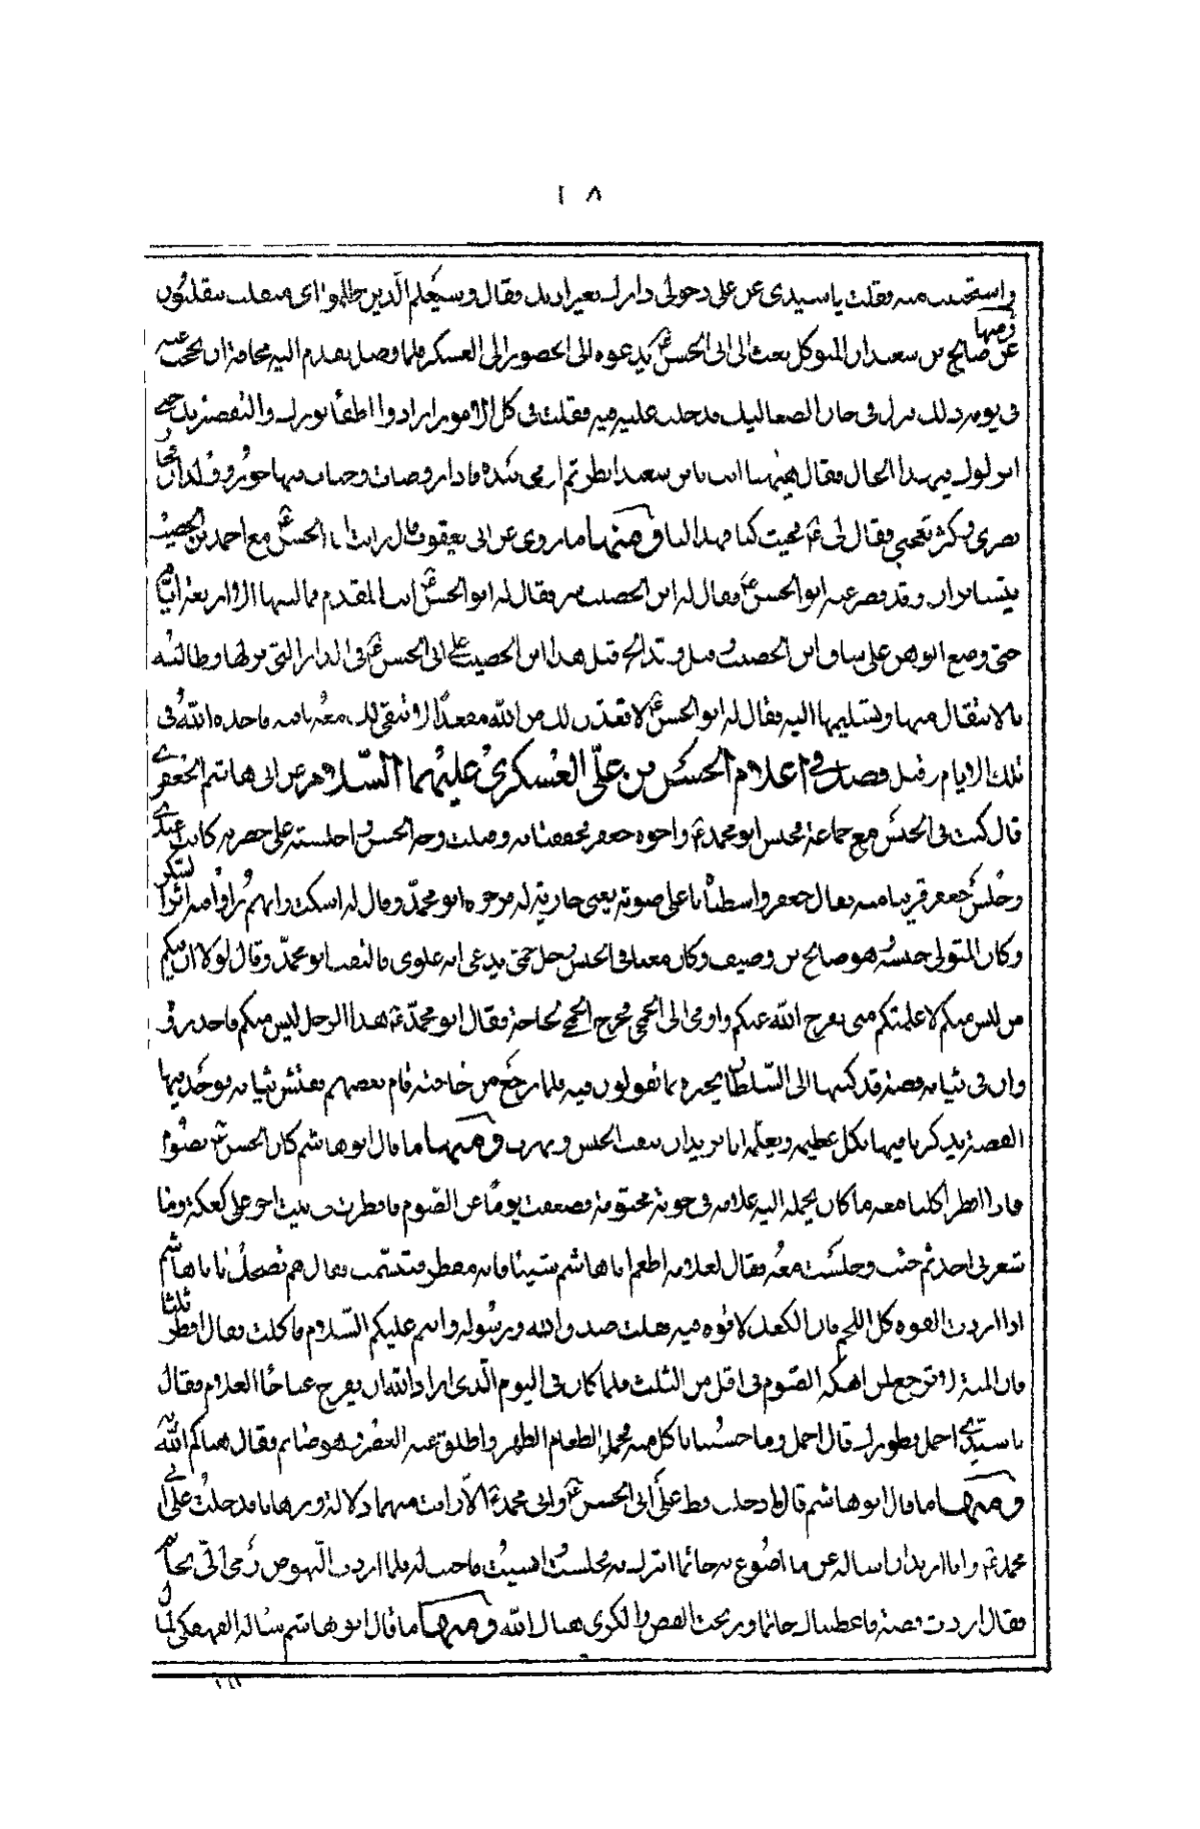 ١٠٨
واستحييت منه فقلت يا سيدي عز علي دخولي دارك بغير اذنك فقال وسيعلم الذين ظلموا اي منقلب ينقلبون
ومنها
عن صالح بن سعيد ان المتوكل بعث الى ابي الحسن ع يدعوه الى الحضور الى العسكر فلما وصل تقدم اليه بحاجة ان يحجب عنه
في يومه ذلك نزل في خان الصعاليك فدخلت عليه فيه فقلت في كل الامور ارادوا اطفاء نورك والتقصير بك حتى
انزلوك فيهذا الخال فقال هيهنا انت يا بن سعيد انظر ثم اومى بيده فاذا روضات وجنات فيها حور وولدان فحار
بصري وكثر تعجبي فقال لي ع حيث كنا فهذا لنا ومنها ما روي عن ابي يعقوب قال رايت ابا الحسن ع مع احمد بن الخصيب
يتسايران وقد قصر عنه ابو الحسن ع فقال له ابن الخصيب سر فقال له ابو الحسن ع انت المقدم فما لبثنا الا اربعة ايام
حتى وضع الوهن على ساق ابن الخصيب وقتل وقد الح قبل هذا ابن الخصيب على ابي الحسن ع في الدار التي نزلها وطالبه
بالانتقال منها وتسليمها اليه فقال له ابو الحسن ع لاقعدن لك من الله مقعدا لا تبقى لك معه باقية فاخذه الله في
تلك الايام وقتل فصل في اعلام الحسن بن علي العسكري عليهما السلام عن ابي هاشم الجعفري
قال كنت في الحبس مع جماعة فحبس ابو محمد ع واخوه جعفر فخففنا به وقبلت وجه الحسن واجلسته على حصرية كانت عندي
وجلس جعفر قريبا منه فقال جعفر واشيطناه باعلى صوته يعني جارية له فزجره ابو محمد وقال له اسكت وانهم راوا منه اثر السكر
وكان المتولى حبسه هو صالح بن وصيف وكان معنا في الحبس رجل جمحي يدعي انه علوي فالتفت ابو محمد وقال لولا ان فيكم
من ليس منكم لاعلمتكم متى يفرج الله عنكم واومى الى الجمحي فخرج الجمحي لحاجة فقال ابو محمد ع هذا الرجل ليس منكم فاحذروه
وان في ثيابه قصة قد كتبها الى السلطان يخبره بما تقولون فيه فلما رجع من حاجته قام بعضهم يفتش ثيابه فوجد فيها
القصة يذكرنا فيها بكل عظيمة ويعلمه انا نريد ان ننقب الحبس ونهرب ومنها ما قال ابو هاشم كان الحسن ع يصوم
فاذا افطر اكلنا معه ما كان يحمله اليه غلامه في جونة مختومة فضعفت يوما عن الصوم فافطرت في بيت اخر على كعكة وما
شعر بي احد ثم جئت وجلست معه فقال لغلامه اطعم ابا هاشم شيئا فانه مفطر فتبسمت فقال مم تضحك يا ابا هاشم
اذا اردت القوة كل اللحم فان الكعك لا قوة فيه فقلت صدق الله ورسوله وانتم عليكم السلام فاكلت فقال افطر ثلثا
فان المنة لا ترجع لمن انهكه الصوم في اقل من الثلث فلما كان في اليوم الذي اراد الله ان يفرج عنا جاءنا الغلام فقال
يا سيدي احمل فطورك قال احمل وما احسبنا ناكل منه فحمل الطعام الظهر واطلق عند العصر وهو صائم فقال هناكم الله
ومنها ما قال ابو هاشم قال ما دخلت قط على ابي الحسن ع وابي محمد ع الا رايت منهما دلالة وبرهانا فدخلت على ابي
محمد ع وانا اريد ان اساله عن ما اصوغ به خاتما اتبرك به فجلست وانسيت ما جئت له فلما اردت النهوض رمى الي بخاتم
فقال اردت فضة فاعطيناك خاتما وربحت الفص والكرى هناك الله ومنها ما قال ابو هاشم ساله الفهفكي لما